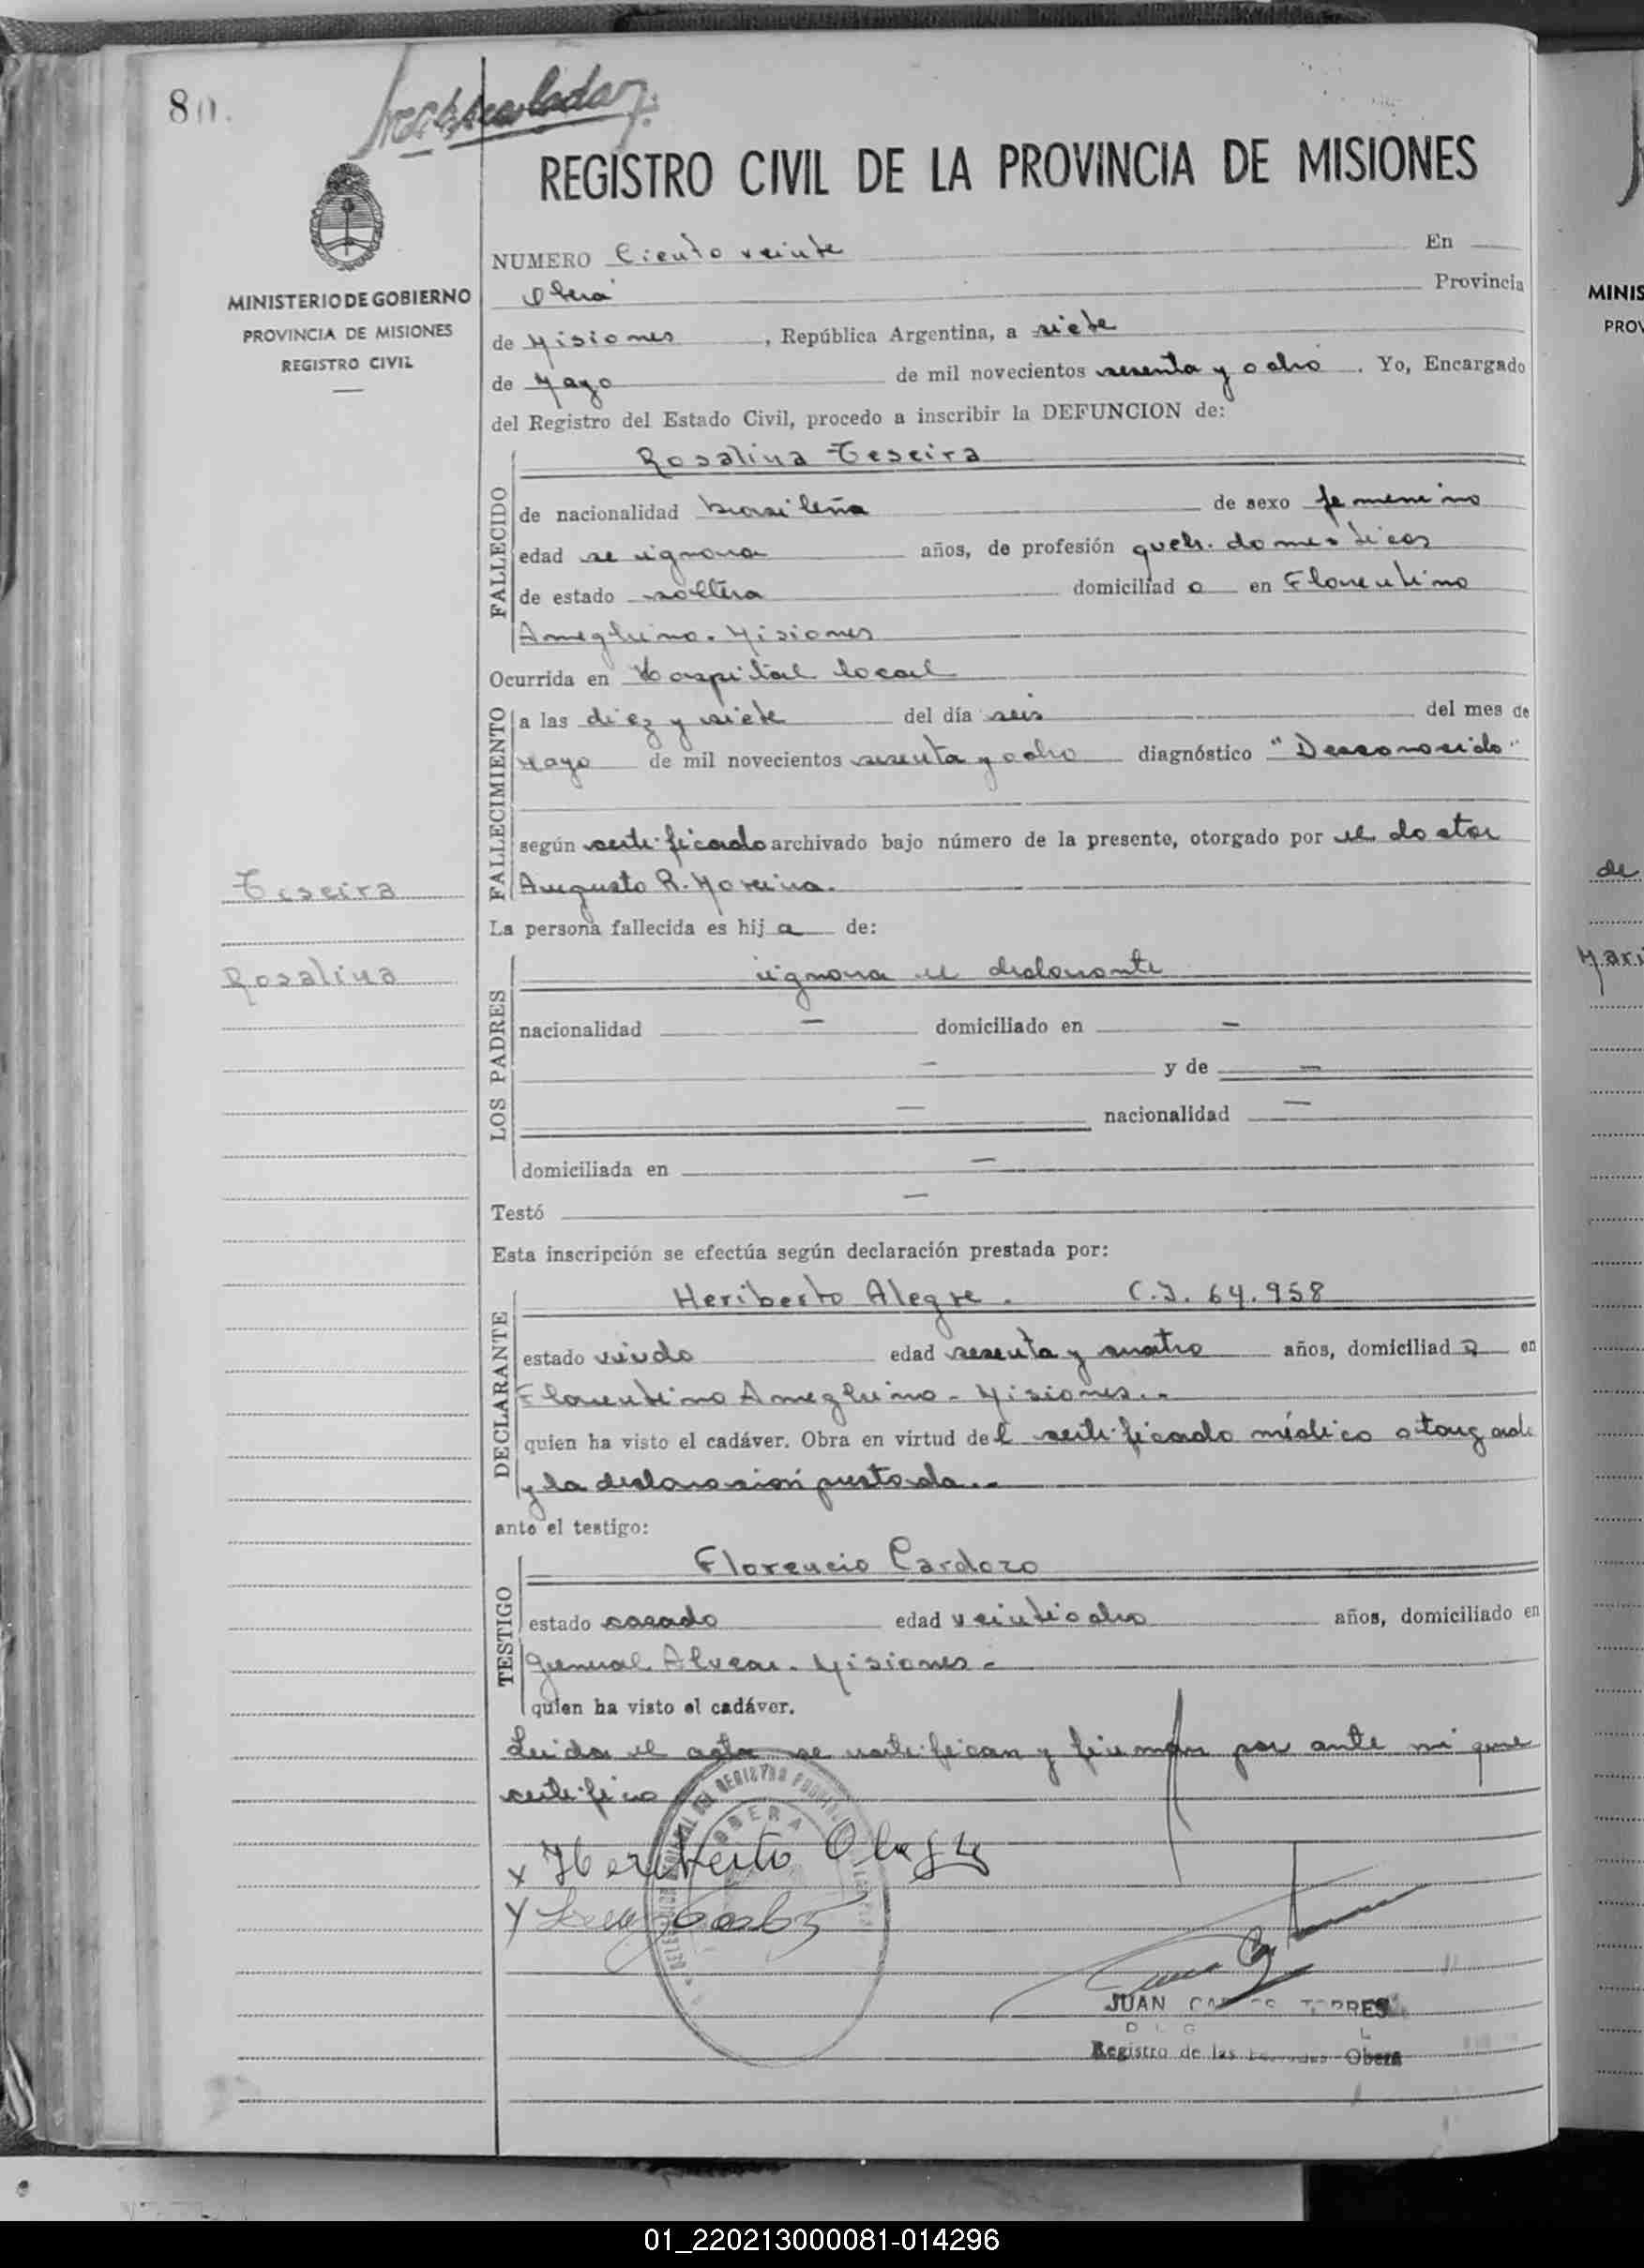 80.
REGISTRO CIVIL DE LA PROVINCIA DE MISIONES
MINISTERIO DE GOBIERNO
PROVINCIA DE MISIONES
REGISTRO CIVIL
NUMERO Ciento veinte En
Oberá Provincia
de Misiones, República Argentina, a siete
de Mayo de mil novecientos sesenta y ocho. Yo, Encargado
del Registro del Estado Civil, procedo a inscribir la DEFUNCION de:
FALLECIDO
Rosalina Teseira
de nacionalidad brasileña de sexo femenino
edad se ignora años, de profesión queh. domésticos
de estado soltera domiciliad a en Florentino
Ameghino. Misiones
Ocurrida en Hospital local
FALLECIMIENTO
a las diez y siete del día seis del mes de
Mayo de mil novecientos sesenta y ocho diagnóstico "Desconocido"
según certificado archivado bajo número de la presente, otorgado por el doctor
Augusto R. Moreira.
Teseira
Rosalina
La persona fallecida es hij a de:
LOS PADRES
ignora el declarante
nacionalidad — domiciliado en —
— y de —
— nacionalidad —
domiciliada en —
Testó —
Esta inscripción se efectúa según declaración prestada por:
DECLARANTE
Heriberto Alegre. C.I. 64.958
estado viudo edad sesenta y cuatro años, domiciliad o en
Florentino Ameghino - Misiones.-
quien ha visto el cadáver. Obra en virtud del certificado médico otorgado
y la declaración prestada.-
ante el testigo:
TESTIGO
Florencio Cardozo
estado casado edad veintiocho años, domiciliado en
General Alvear. Misiones-
quien ha visto el cadáver.
Leida el acta se ratifican y firman por ante mi que
certifico
x Heriberto Alegre
OBERA
JUAN CARLOS TORRES
Registro de las Personas Oberá
MINIS
PROV
de
Mari
01_220213000081-014296